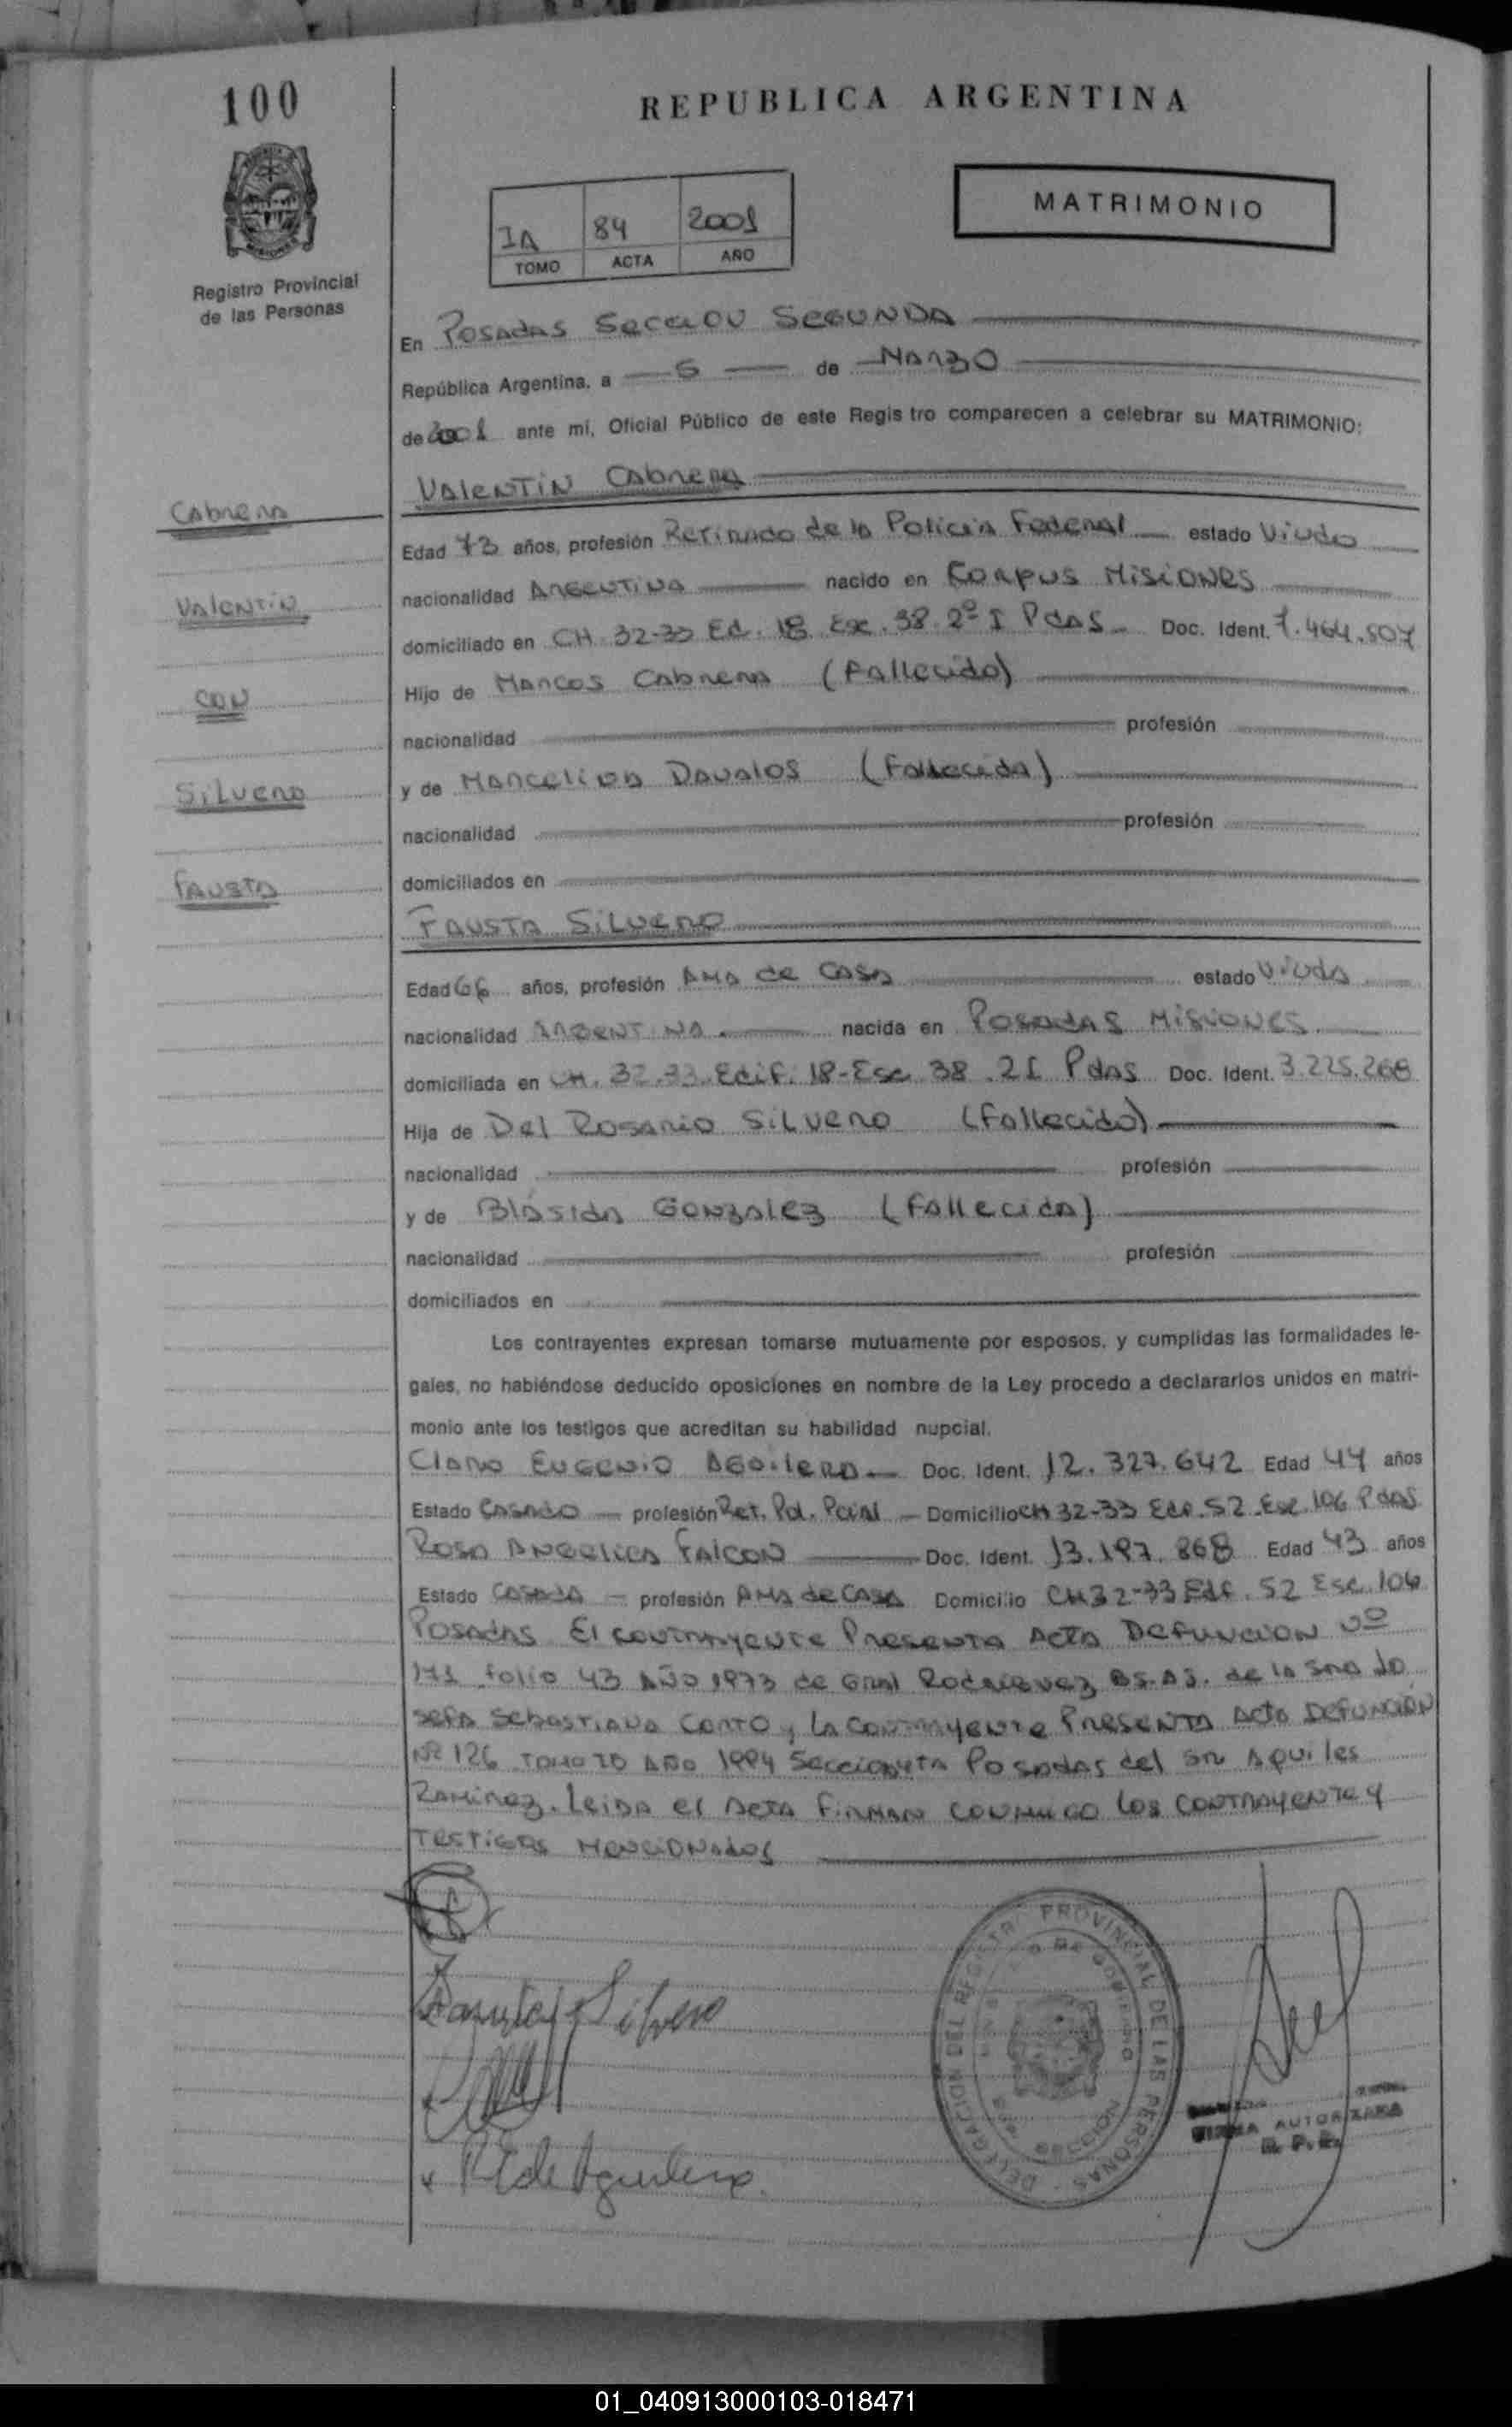 100
REPUBLICA ARGENTINA
MATRIMONIO
IA 84 2001
TOMO ACTA AÑO
Registro Provincial
de las Personas
En Posadas Seccion Segunda
República Argentina, a 5 de Marzo
de 2001 ante mí, Oficial Público de este Registro comparecen a celebrar su MATRIMONIO:
Valentin Cabrera
Cabrera
Edad 73 años, profesión Retirado de la Policia Federal estado Viudo
nacionalidad Argentina nacido en Corpus Misiones
Valentin
domiciliado en CH. 32-33 Ed. 18 Esc. 38. 2º I Pdas Doc. Ident. 7.464.507
Hijo de Marcos Cabrera (Fallecido)
con
nacionalidad profesión
y de Marcelina Davalos (Fallecida)
Silvero
nacionalidad profesión
domiciliados en
Fausta
Fausta Silvero
Edad 66 años, profesión Ama de Casa estado Viuda
nacionalidad Argentina nacida en Posadas Misiones
domiciliada en CH. 32-33 Edif. 18-Esc 38 .2 I Pdas Doc. Ident. 3.225.268
Hija de Del Rosario Silvero (Fallecido)
nacionalidad profesión
y de Blasida Gonzalez (Fallecida)
nacionalidad profesión
domiciliados en
Los contrayentes expresan tomarse mutuamente por esposos, y cumplidas las formalidades le-
gales, no habiéndose deducido oposiciones en nombre de la Ley procedo a declararlos unidos en matri-
monio ante los testigos que acreditan su habilidad nupcial.
Claro Eugenio Aguilera Doc. Ident. 12.327.642 Edad 44 años
Estado Casado profesión Ret. Pol. Pcial Domicilio CH 32-33 Edf. 52 Esc. 106 Pdas
Rosa Angelica Falcon Doc. Ident. 13.197.868 Edad 43 años
Estado Casada profesión Ama de Casa Domicilio CH 32-33 Edf. 52 Esc. 106
Posadas El contrayente Presenta Acta Defuncion Nº
171 folio 43 Año 1973 de Gral Rodriguez Bs.As. de la Sra Jo
sefa Sebastiana Conto y la contrayente Presenta Acta Defunción
Nº 126 Tomo Año 1994 Posadas del Sr Aquiles
Ramirez. Leida el Acta Firman conmigo los contrayente y
Testigos Mencionados
Fausta Silvero
R F de Aguilera
DELEGACION DEL REGISTRO PROVINCIAL DE LAS PERSONAS
FIRMA AUTORIZADA
R. P. P.
01_040913000103-018471